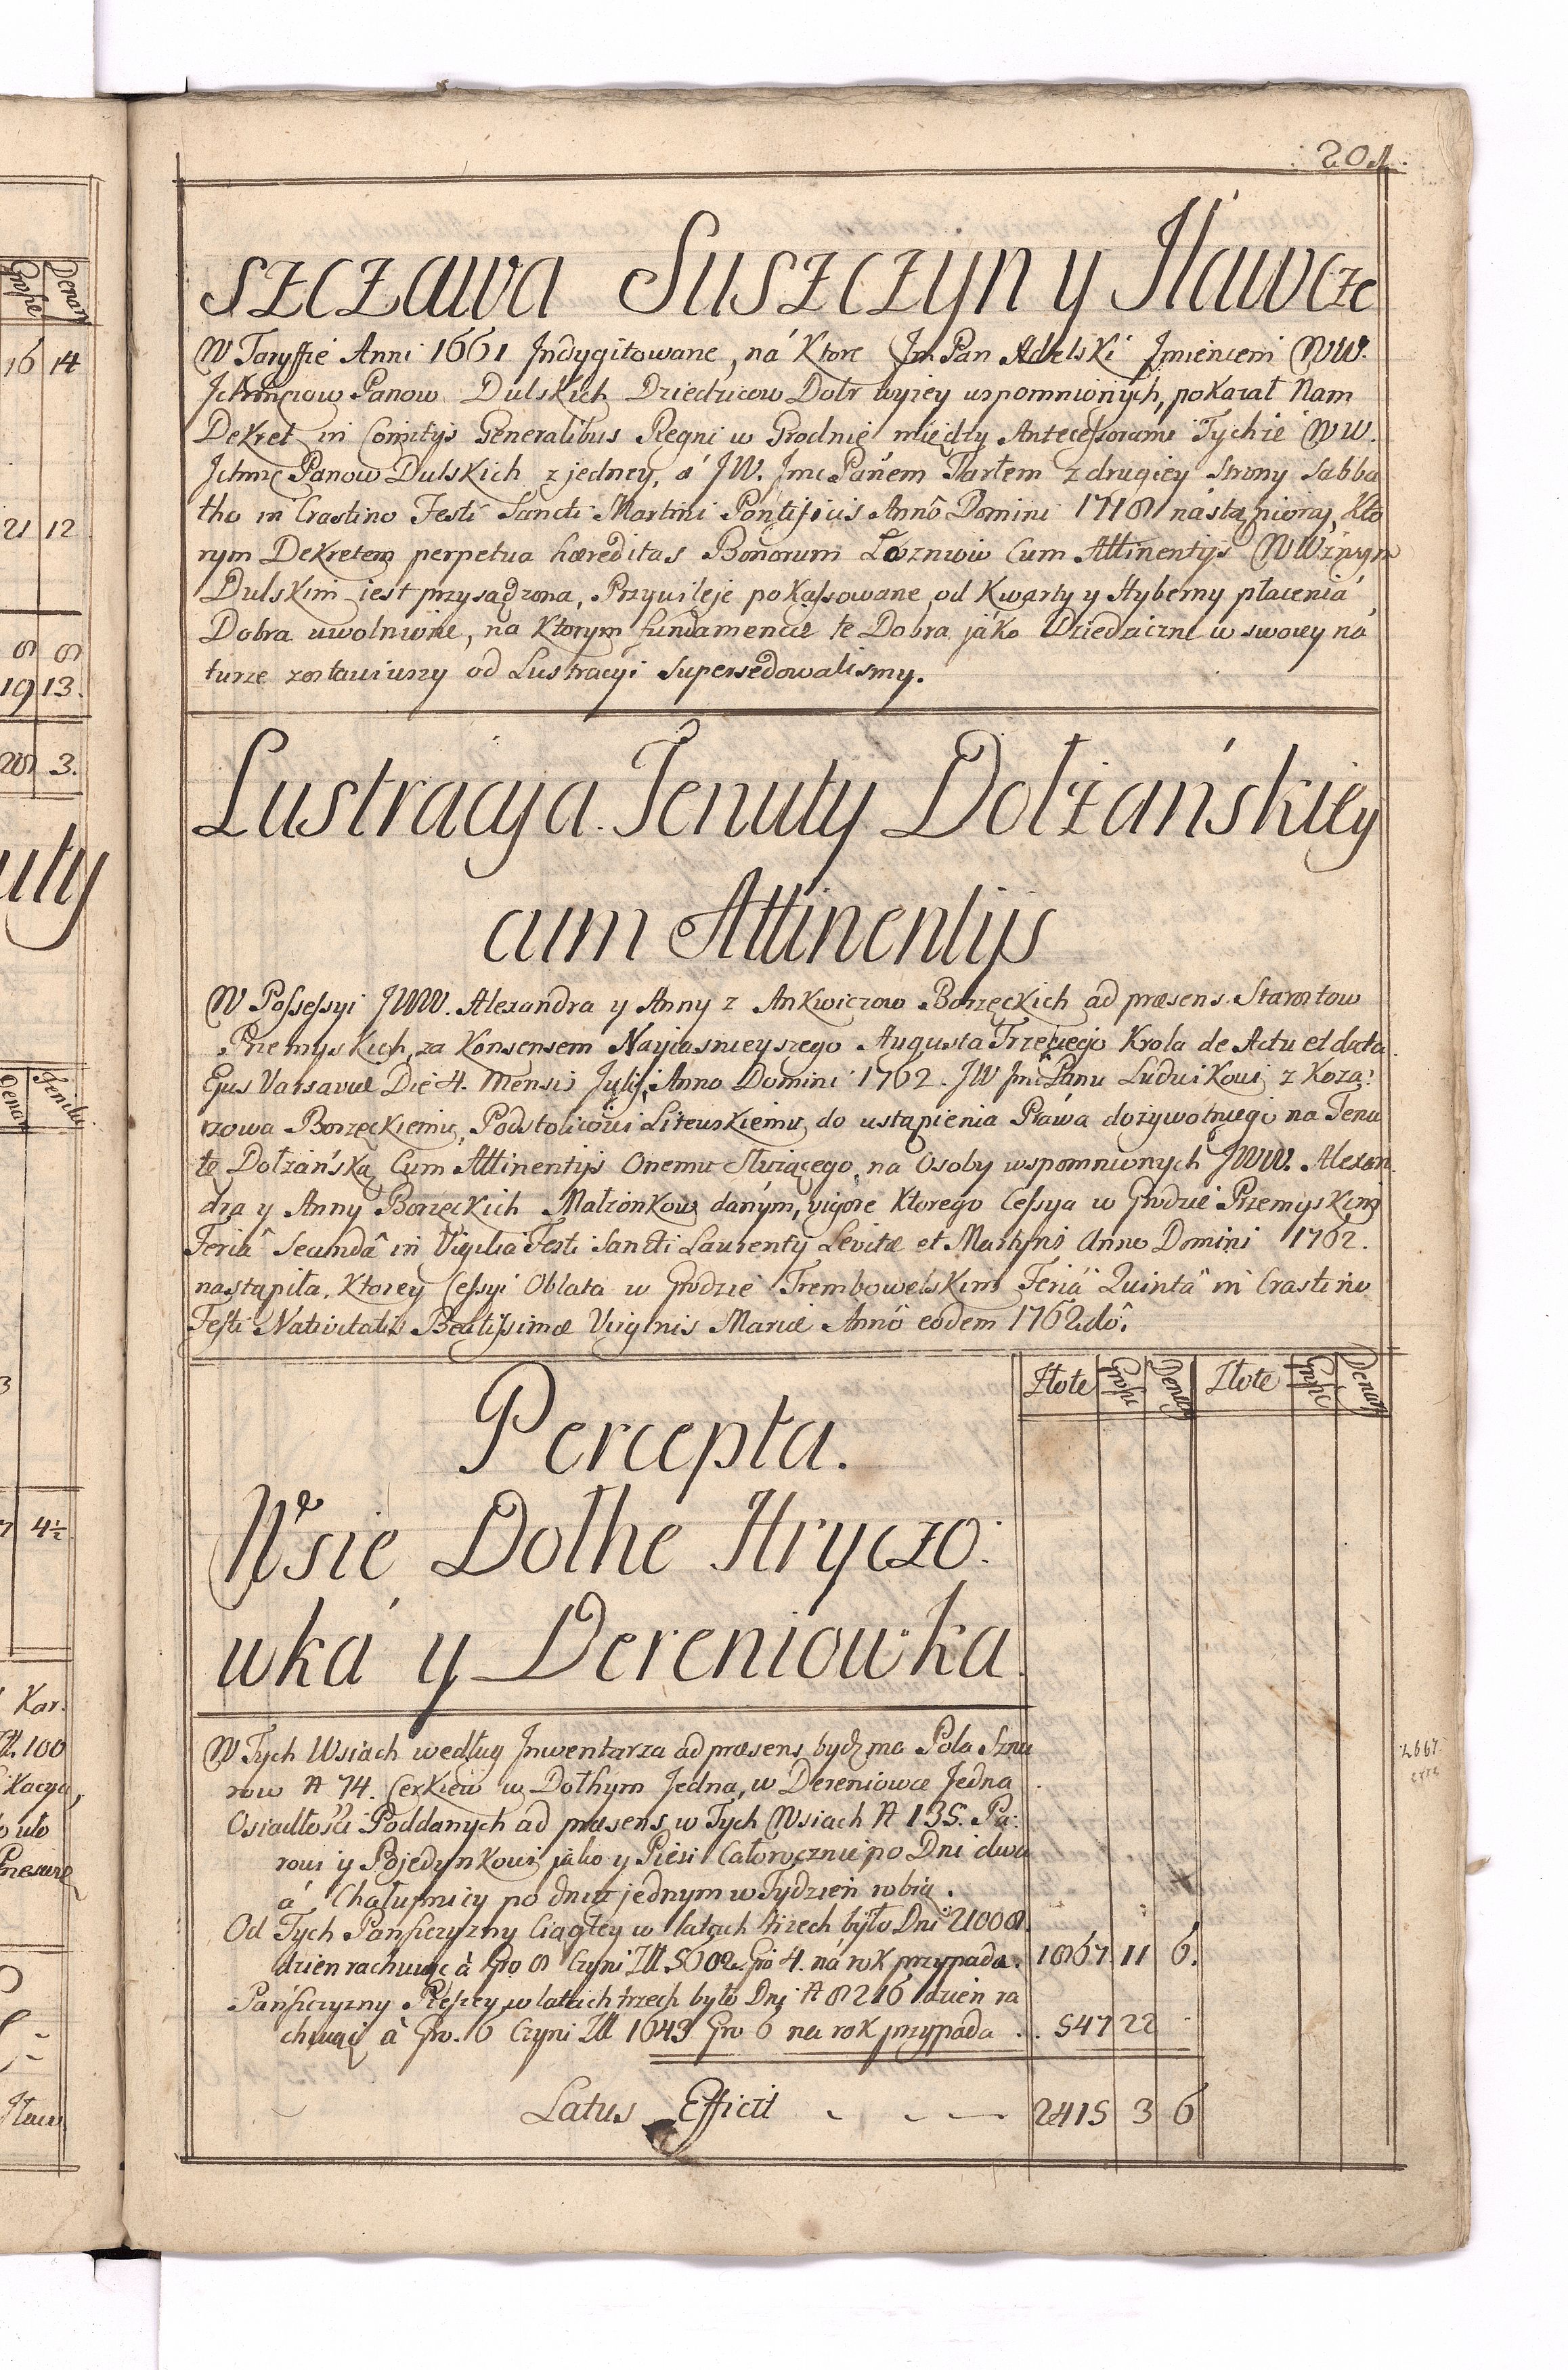 201.
szczawa Suszczyn y Iławcze
W Taryffie Anni 1661 Indygitowane, ná Ktore Jm Pan Adelski Jmieniem WW.
Jchmciow Panow Dulskich Dziedzicow Dobr wyżey wspomnionych, pokazał Nam
Dekret in Comitijs Generalibus Regni w Grodnie między Antecessorami Tychże WW.
Jchmć Panow Dulskich z jedney, á JW. Jmc Panem Tarłem z drugiey Strony Sabba
tho in Crastino Festi Sancti Martini Pontificis Annô Domini 1718 nástąpiony, Kto
rym Dekretem perpetua hæreditas Bonorum Łozniow Cum Attinentijs WWżnym
Dulskim iest przysądzona, Przywileje pokassowane, od Kwarty y Hyberny płacenia
Dobra uwolnione, na Ktorym fundamencie te Dobra jáko Dziedziczne w swoiey ná
turze zostawiwszy od Lustracyi Supersedowalismy.
Lustracyja Tenuty Dołżańskiey
cum Attinentijs
W Possessyi JWW. Alexandra y Anny z Ankwiczow Borzęckich ad præsens Starostow
Przemyskich, za Konsensem Nayiasnieyszego Augusta Trzeciego Krola de Actu et data
Ejus Varsaviæ Die 4. Mensis Julij, Anno Domini 1762. JW Jmć Panu Ludwikowi z Koza:
rzowa Borzęckiemu, Podstoliowi Litewskiemu do ustąpienia Prawa dożywotniego na Tenu
tę Dołżańską Cum Attinentijs Onemu Służącego, na Osoby wspomnionych JWW. Alexan
dra y Anny Borzęckich Małżonkow danym, vigore Ktorego Cessya w Grodzie Przemyskim
Feriâ Secundâ in Vigilia Festi Sancti Laurentij Levitæ et Martyris Anno Domini 1762.
nastąpiła, Ktorey Cessyi Oblata w Grodzie Trembowelskim Feriâ Quintâ in Crastino
Festi Nativitatis Beatissimæ Virginis Mariæ Annô eodem 1762dô.
Złote Grosze Denary Złote Grosze Denary
Percepta.
Wsie Dołhe Hryczo:
wka y Dereniowka.
W Tych Wsiach według Jnwentarza ad præsens bydź ma Pola Sznu
row N 74. Cerkiew w Dołhym Jedna, w Dereniowce Jedna
Osiadłości Poddanych ad præsens w Tych Wsiach N 135. Pa:
rowi y Pojedynkowi jako y Piesi Całorocznie po Dni dwa
á Chałupnicy po dniu jednym w Tydzień robią.
Od Tych Pańszczyzny Ciągłey w latach trzech było Dni 21008.
dzien rachuiąc à Gro 8 Czyni Złł 5602 Gro 4. ná rok przypada. 1867 11 6.
Pańszczyzny Pieszey w latach trzech było Dni N 8216 dzień ra
chuiąc à Gro. 6 Czyni Złł 1643 Gro 6 na rok przypada .. 547 22
Latus Efficit 2415 3 6